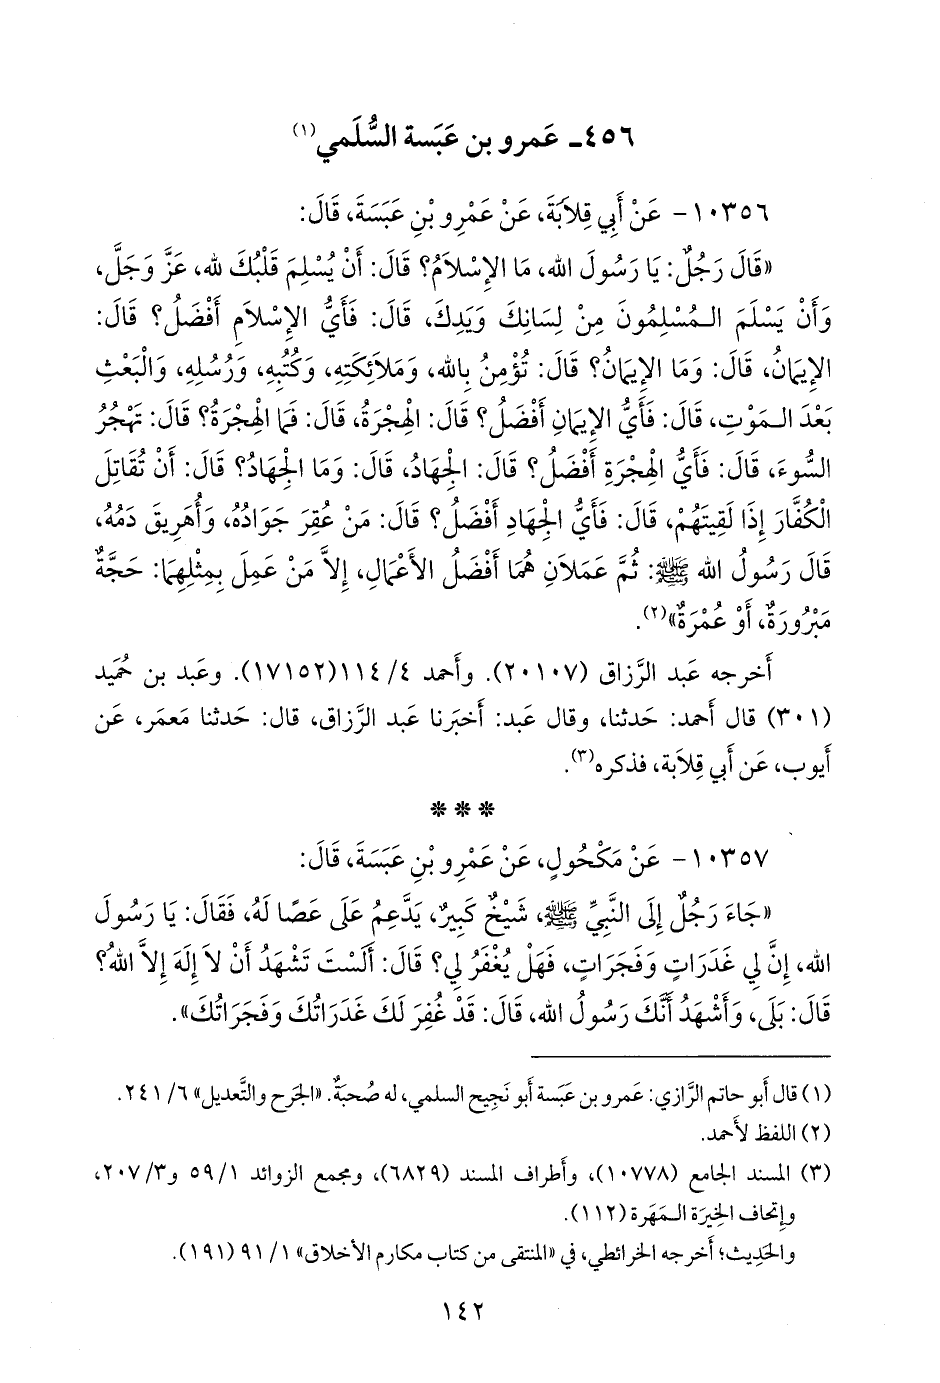 ٤٥٦ـ عَمرو بن عَبَسة السُّلَمي(١)
١٠٣٥٦- عَنْ أَبِي قِلاَبَةَ، عَنْ عَمْرِو بْنِ عَبَسَةَ، قَالَ:
«قَالَ رَجُلٌ: يَا رَسُولَ الله، مَا الإِسْلاَمُ؟ قَالَ: أَنْ يُسْلِمَ قَلْبُكَ لله، عَزَّ وَجَلَّ،
وَأَنْ يَسْلَمَ الـمُسْلِمُونَ مِنْ لِسَانِكَ وَيَدِكَ، قَالَ: فَأَيُّ الإِسْلاَمِ أَفْضَلُ؟ قَالَ:
الإِيمَانُ، قَالَ: وَمَا الإِيمَانُ؟ قَالَ: تُؤْمِنُ بِالله، وَمَلاَئِكَتِهِ، وَكُتُبِهِ، وَرُسُلِهِ، وَالْبَعْثِ
بَعْدَ الـمَوْتِ، قَالَ: فَأَيُّ الإِيمَانِ أَفْضَلُ؟ قَالَ: الْهِجْرَةُ، قَالَ: فَمَا الْهِجْرَةُ؟ قَالَ: تَهْجُرُ
السُّوءَ، قَالَ: فَأَيُّ الْهِجْرَةِ أَفْضَلُ؟ قَالَ: الْجِهَادُ، قَالَ: وَمَا الْجِهَادُ؟ قَالَ: أَنْ تُقَاتِلَ
الْكُفَّارَ إِذَا لَقِيتَهُمْ، قَالَ: فَأَيُّ الْجِهَادِ أَفْضَلُ؟ قَالَ: مَنْ عُقِرَ جَوَادُهُ، وَأُهَرِيقَ دَمُهُ،
قَالَ رَسُولُ الله ﷺ: ثُمَّ عَمَلاَنِ هُمَا أَفْضَلُ الأَعْمَالِ، إِلاَّ مَنْ عَمِلَ بِمِثْلِهِمَا: حَجَّةٌ
مَبْرُورَةٌ، أَوْ عُمْرَةٌ»(٢).
أَخرجه عَبد الرَّزاق (٢٠١٠٧). وأَحمد ٤/ ١١٤(١٧١٥٢). وعَبد بن حُمَيد
(٣٠١) قال أَحمد: حَدثنا، وقال عَبد: أَخبَرنا عَبد الرَّزاق، قال: حَدثنا مَعمَر، عَن
أَيوب، عَن أَبي قِلاَبة، فذكره(٣).
* * *
١٠٣٥٧- عَنْ مَكْحُولٍ، عَنْ عَمْرِو بْنِ عَبَسَةَ، قَالَ:
«جَاءَ رَجُلٌ إِلَى النَّبِيِّ ﷺ، شَيْخٌ كَبِيرٌ، يَدَّعِمُ عَلَى عَصًا لَهُ، فَقَالَ: يَا رَسُولَ
الله، إِنَّ لِي غَدَرَاتٍ وَفَجَرَاتٍ، فَهَلْ يُغْفَرُ لِي؟ قَالَ: أَلَسْتَ تَشْهَدُ أَنْ لاَ إِلَهَ إِلاَّ اللهُ؟
قَالَ: بَلَى، وَأَشْهَدُ أَنَّكَ رَسُولُ الله، قَالَ: قَدْ غُفِرَ لَكَ غَدَرَاتُكَ وَفَجَرَاتُكَ».
(١) قال أَبو حاتم الرَّازي: عَمرو بن عَبَسة أَبو نَجيح السلمي، له صُحبَةٌ. «الجَرح والتَّعديل» ٦/ ٢٤١.
(٢) اللفظ لأَحمد.
(٣) المسند الجامع (١٠٧٧٨)، وأَطراف المسند (٦٨٢٩)، ومجمع الزوائد ١/ ٥٩ و٣/ ٢٠٧،
وإِتحاف الخِيرَة الـمَهَرة (١١٢).
والحَدِيث؛ أَخرجه الخرائطي، في «المنتقى من كتاب مكارم الأخلاق» ١/ ٩١ (١٩١).
١٤٢